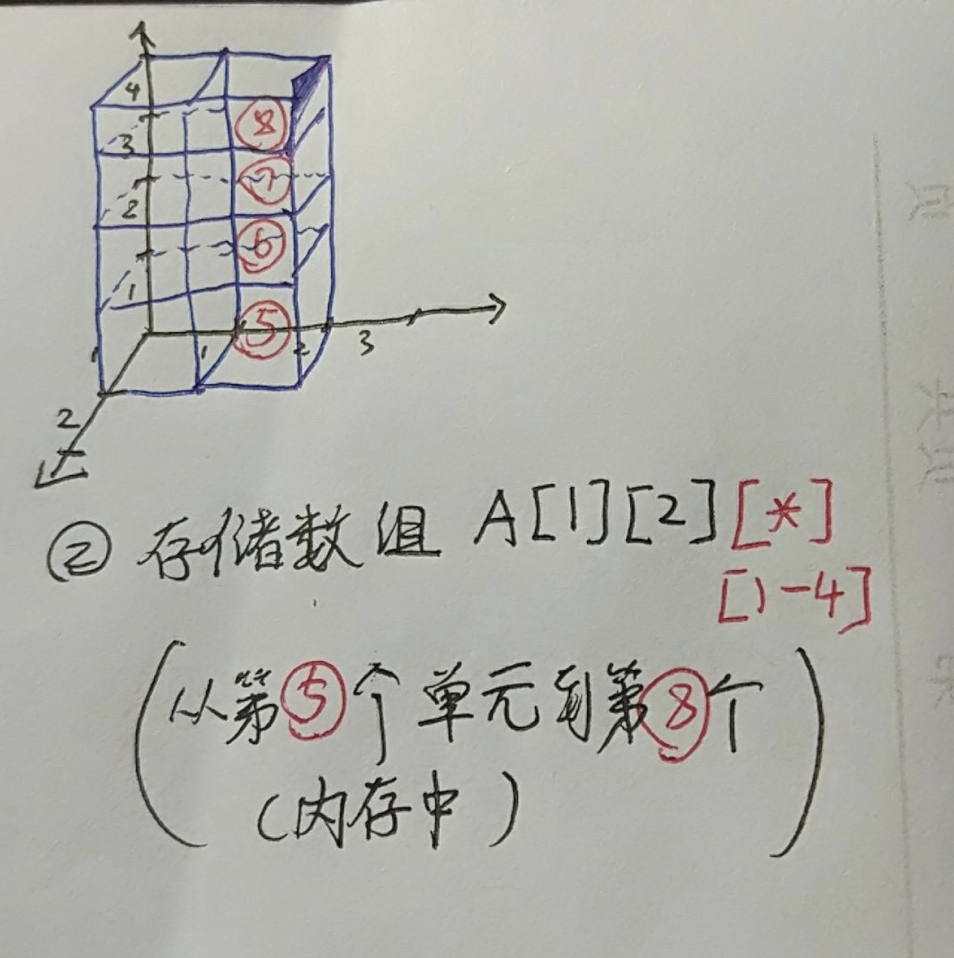 4
⑧
3
⑦
2
⑥
1
⑤
1 1 2 3
2
② 存储数组 A[1][2][*]
[1-4]
(从第⑤个单元到第⑧个
(内存中))